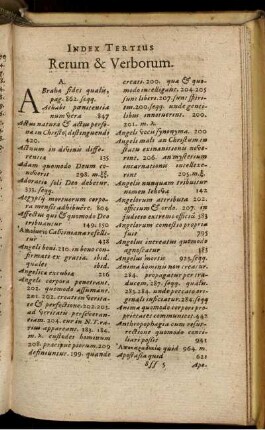 INDEX TERTIUS
Rerum & Verborum.
A.
ABraha fides qualis,
pag. 862. seqq.
Achabi pœnitentia
num vera 847
Actus natura & actus perso-
na in Christo, distinguendi
420.
Actuum in divinis diffe-
rentia 135
Adam quomodo Deum co-
gnoverit 298.
Adoratio soli Deo debetur.
332. seqq.
Ægyptij mortuorum corpo-
ra mensis adhibuere 604
Affectus qui & quomodo Deo
tribuantur 150
refelli-
tur 428
Angeli boni 210. in bono con-
firmati ex gratia. ibid.
quales ibid.
Angelica excubia 216
Angeli corpora penetrant.
202. quomodo assumant.
201. 202. creati in verita-
te & perfectione. 202. 203.
ad veritatis perseveran-
tiam. 204. cur in N.T. ra-
rius appareant. 183. 184.
custodes hominum
208. præcipue piorum. 209
definiuntur. 199. quando
creati. 200. qua & quo-
modo intelligant. 204. 205
sunt liberi. 207. sunt spiri-
tus. 200. seqq. unde genti-
libus innotuerint. 200.
201.
Angeli vocis synonyma. 200
Angeli mali an Christum in
statu exinanitionis nove-
rint. 206. an mysterium
incarnationis intellexe-
rint 209.
Angelo nunquam tribuitur
nomen Iehova 142
Angelorum attributa 202.
officium & ordo. 207. in
judicio extremo officii 583
Angelorum cometiæ propriæ
593
Angelus increatus quomodo
agnoscatur 485
Angelus mortis 925. seqq.
Anima hominis non creatur.
284. propagatur per tra-
ducem. 287. seqq. qualis.
283. 284. unde peccato ori-
ginali inficiatur. 284. seqq
Anima quomodo corporis pro-
prietates communicet. 942
Anthropophagia cum resur-
rectione quomodo conci-
liari possit 981
quid 964. m.
Apostasia quid 621
fff 5 Apo-